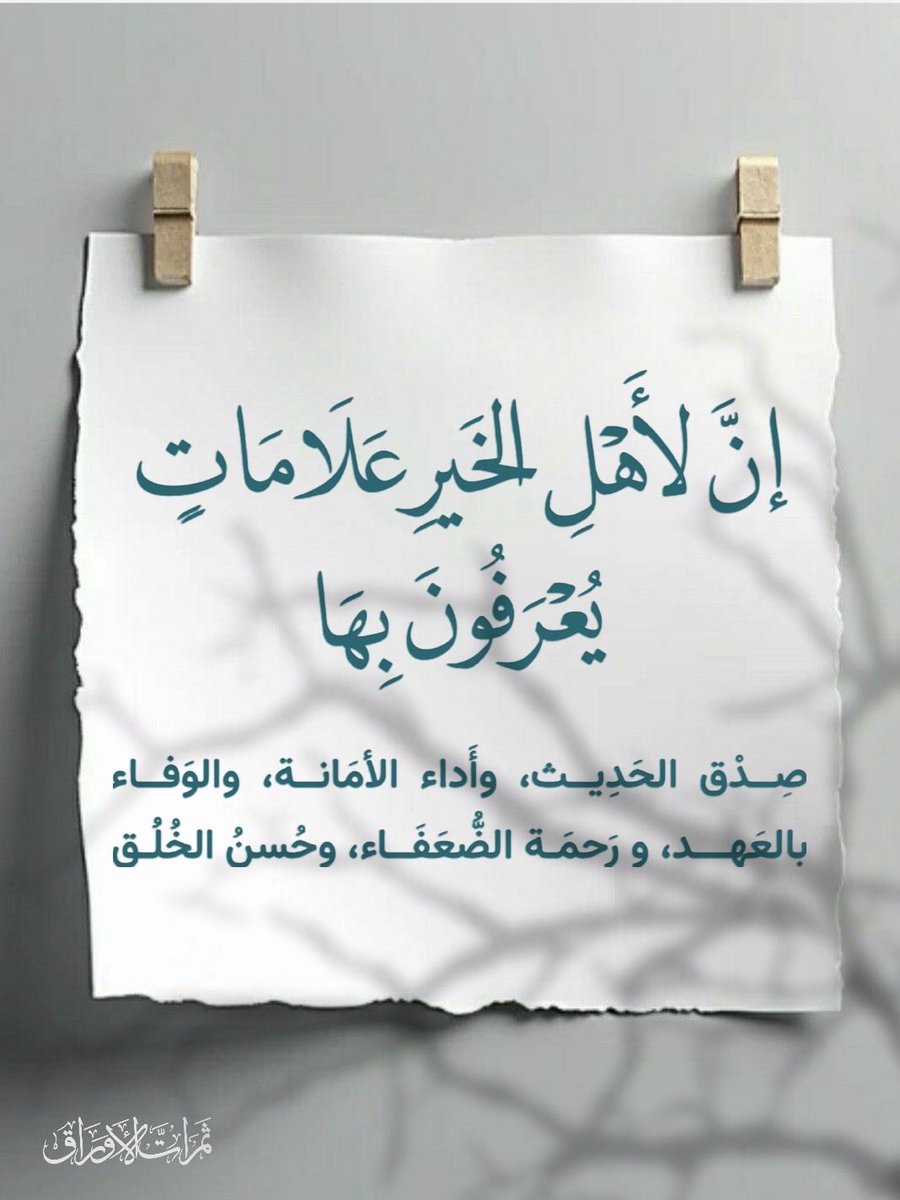 إنَّ لأَهْلِ الخَيرِ عَلَامَاتٍ
يُعْرَفُونَ بِهَا
صِدْق الحَدِيث، وأَداء الأمَانة، والوَفاء
بالعَهد، و رَحمَة الضُّعَفَاء، وحُسنُ الخُلُق
ثمرات الأوراق